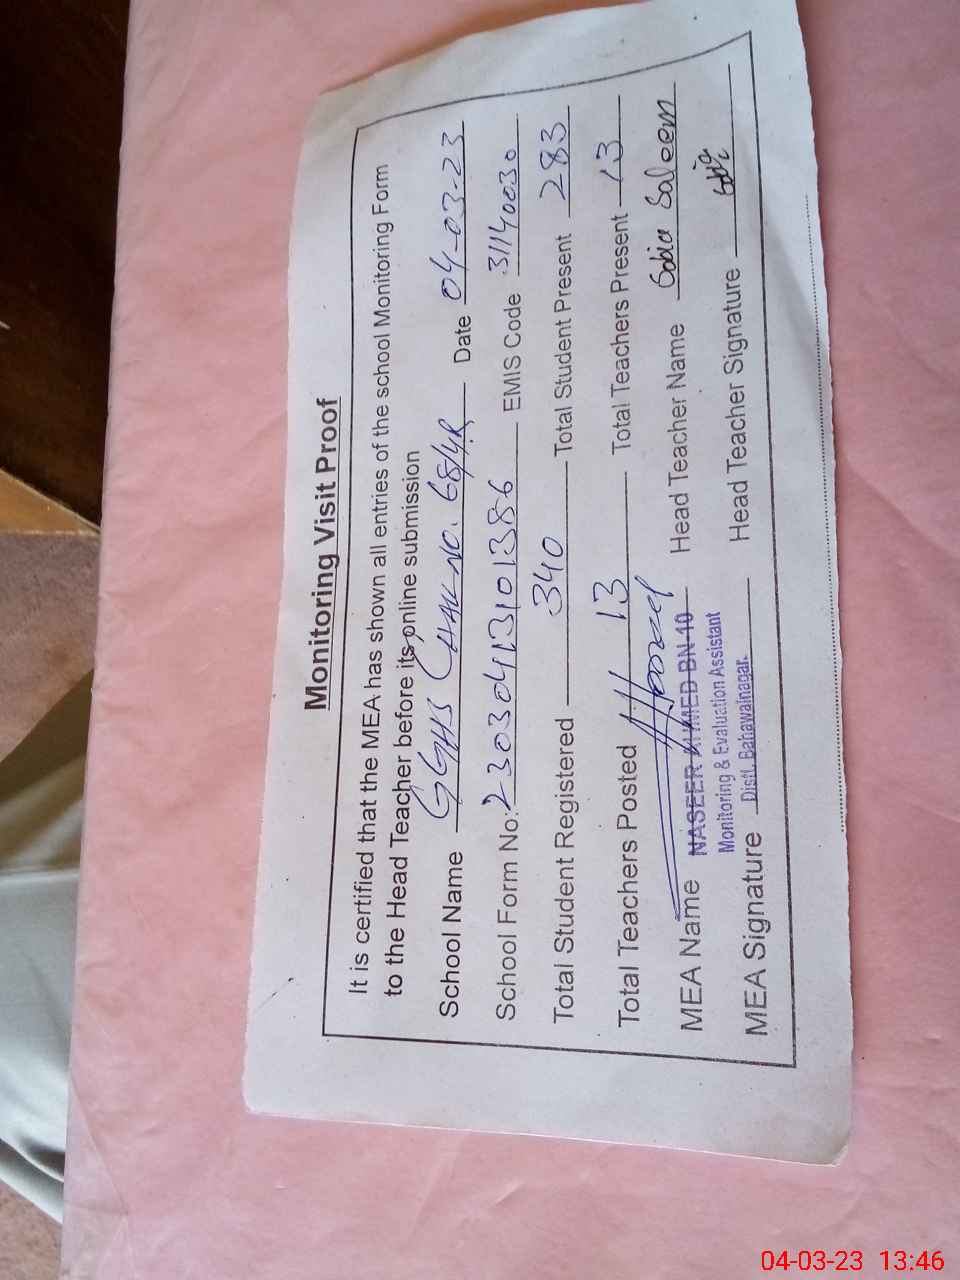 Monitoring Visit Proof
It is certified that the MEA has shown all entries of the school Monitoring Form
to the Head Teacher before its online submission
School Name GGHS CHAK NO. 68/4R Date 04-03-23
School Form No: 23030413101386 EMIS Code 31140030
Total Student Registered 340 Total Student Present 283
Total Teachers Posted 13 Total Teachers Present 13
MEA Name NASEER AHMED BN-10 Head Teacher Name Sobia Saleem
Monitoring & Evaluation Assistant
MEA Signature Distt. Bahawalnagar. Head Teacher Signature Sobia
04-03-23 13:46